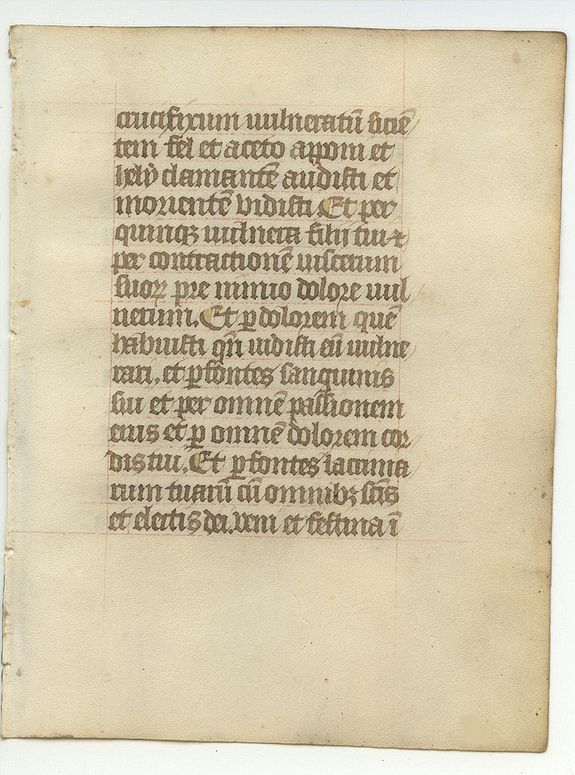 crucifixum uulneratū sicie
tem fel et aceto apponi et
hely clamantē audisti et
morientē vidisti Et per
quinqȝ uulnera filij tui ⁊
per contractionē uiscerum
suoꝝ pre nimio dolore uul
nerum. Et ꝑ dolorem quē
habuisti qn̄ uidisti eū uulne
rari. et ꝑ fontes sanguinis
sui et per omnē passionem
eius et ꝑ omnē dolorem cor
dis tui. Et ꝑ fontes lacrima
rum tuarū cū omnibȝ scīs
et electis dei. veni et festina ī